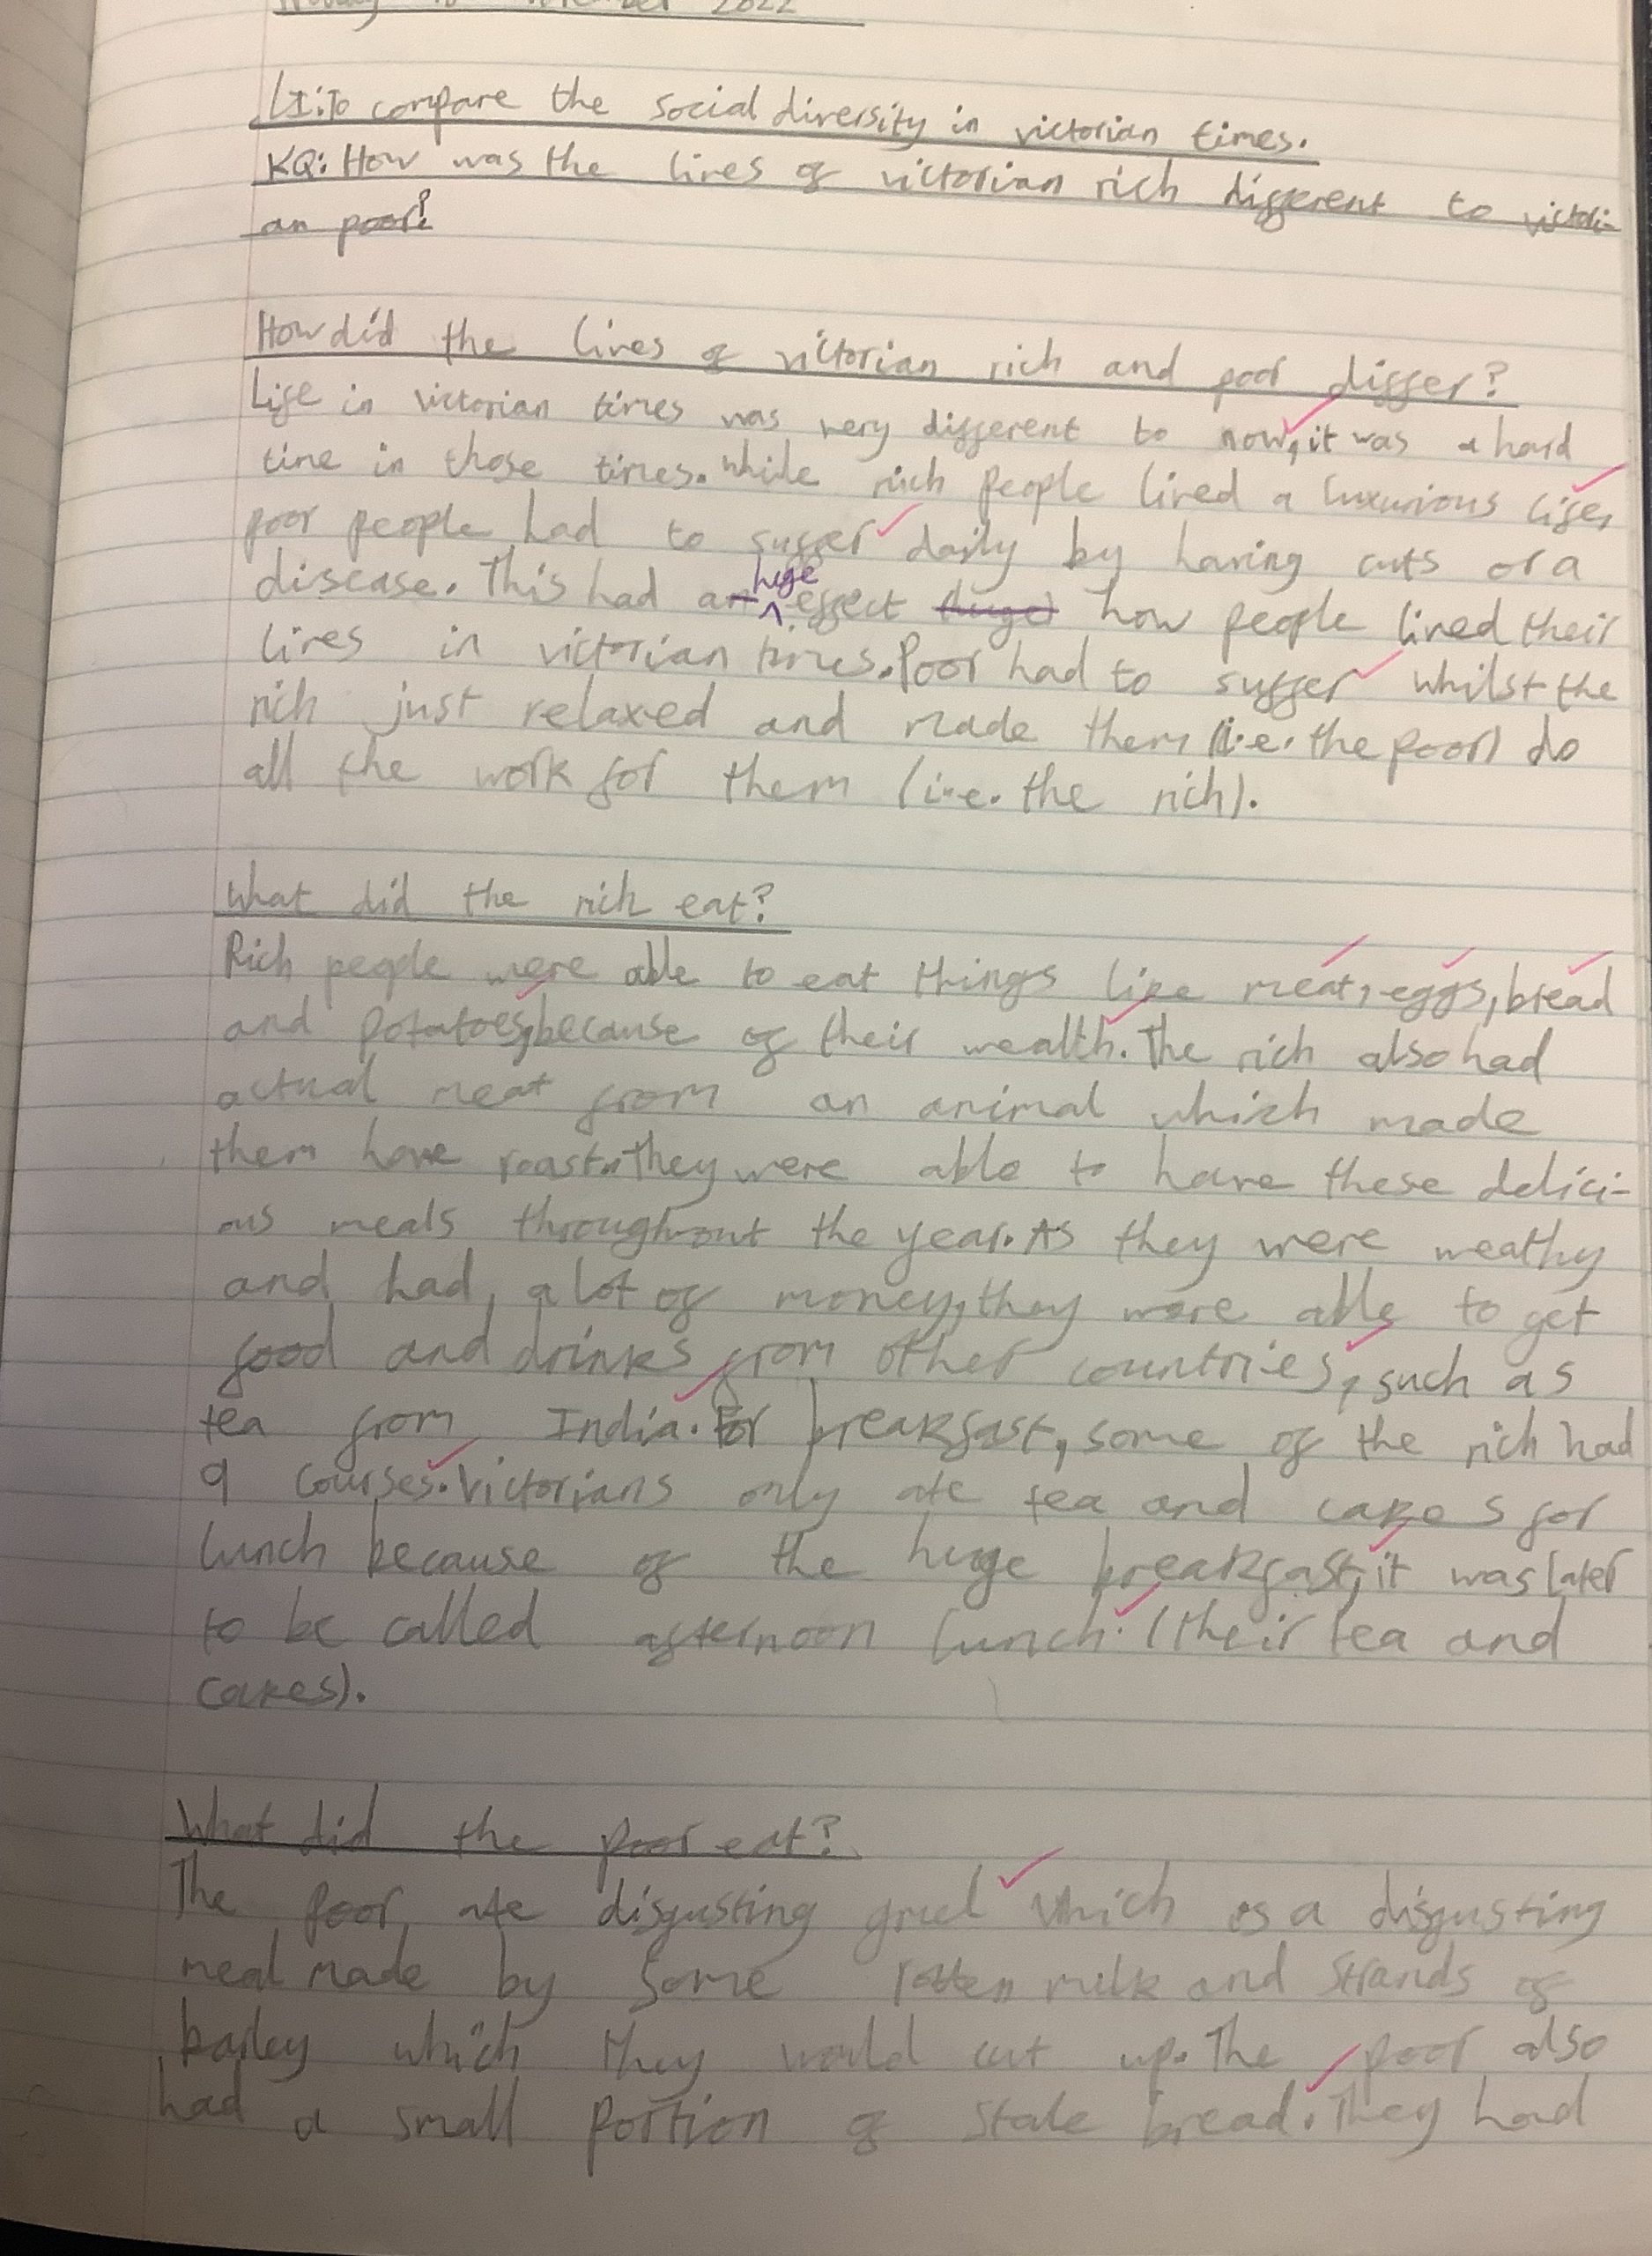 2022
LI: To compare the social diversity in victorian times.
KQ: How was the lives of victorian rich different to victori-
an poor?
How did the lives of victorian rich and poor differ?
Life in victorian times was very different to now, it was a hard
time in those times. While rich people lived a luxurious life,
poor people had to suffer daily by having cuts or a
disease. This had a huge effect how people lived their
lives in victorian times. Poor had to suffer whilst the
rich just relaxed and made them (i.e. the poor) do
all the work for them (i.e. the rich).
What did the rich eat?
Rich people were able to eat things like meat, eggs, bread
and potatoes, because of their wealth. The rich also had
actual meat from an animal which made
them have roast. They were able to have these delici-
ous meals throughout the year. As they were weathy
and had a lot of money, they were able to get
food and drinks from other countries, such as
tea from India. For breakfast, some of the rich had
9 courses. Victorians only ate tea and cakes for
lunch because of the huge breakfast, it was later
to be called afternoon lunch. (their tea and
cakes).
What did the poor eat?
The poor ate disgusting gruel which is a disgusting
meal made by some rotten milk and strands of
barley which they would cut up. The poor also
had a small portion of stale bread. They had